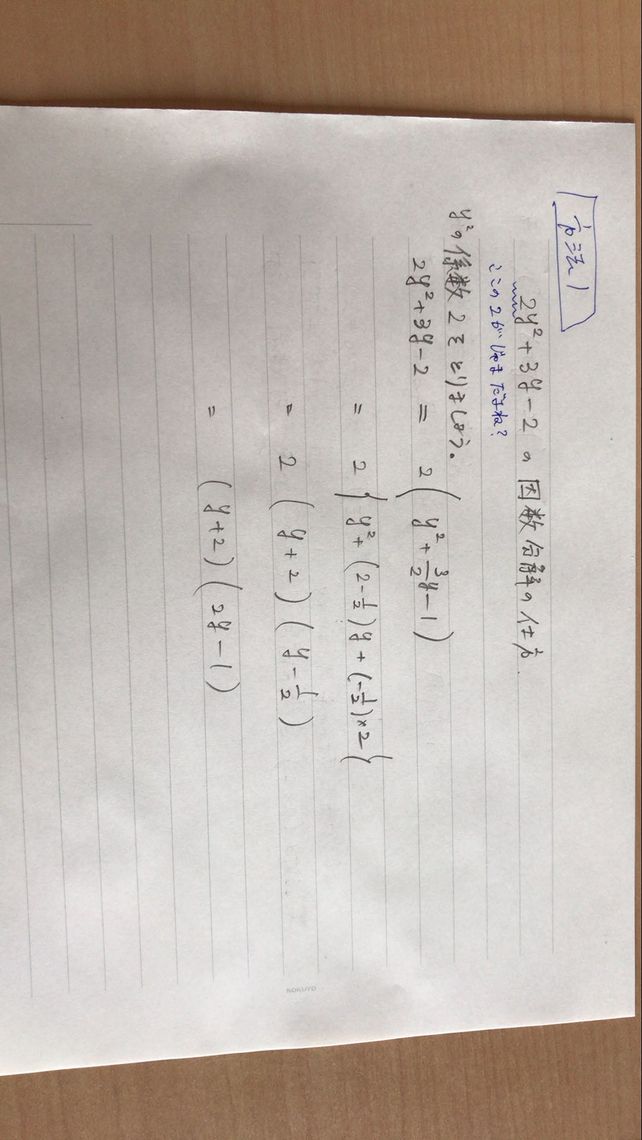 方法1
2y²+3y-2 の 因数分解の仕方.
ここの2がじゃまだよね?
y²の係数2をとりましょう。
2y²+3y-2 = 2(y²+3/2y-1)
= 2{y²+(2-1/2)y+(-1/2)×2}
= 2(y+2)(y-1/2)
= (y+2)(2y-1)
KOKUYO